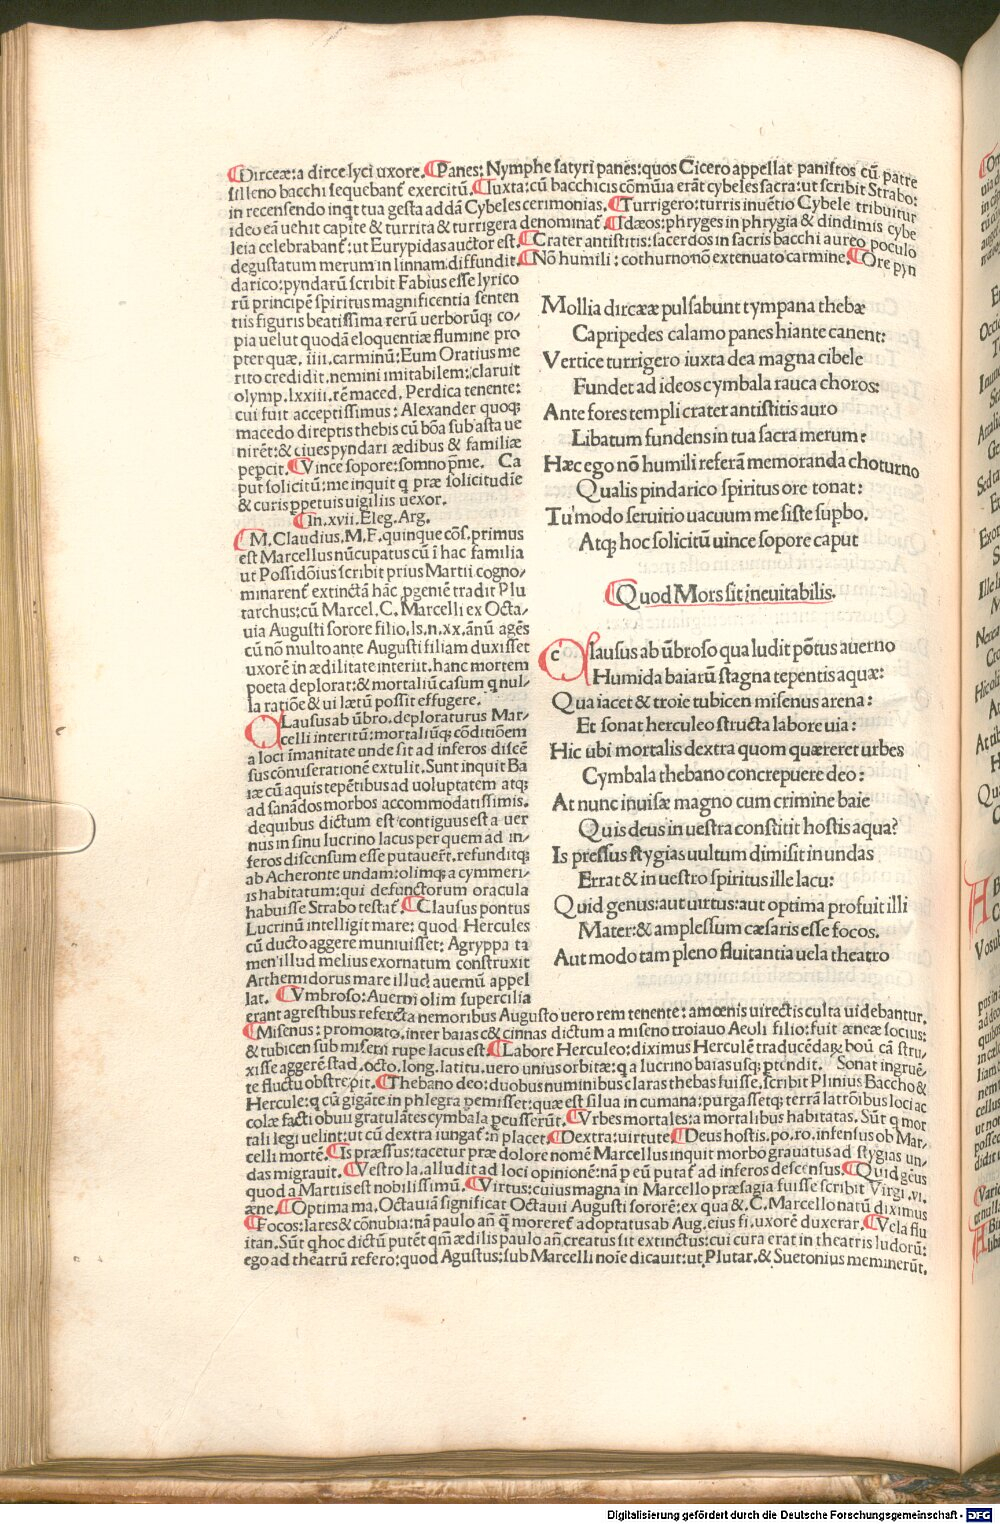 ¶Dirceæ:a dirce lyci uxore.¶Panes:Nymphe satyri panes:quos Cicero appellat paniscos cũ patre
silleno bacchi sequebant̃ exercitũ.¶Iuxta:cũ bacchicis cõmũia erãt cybeles sacra:ut scribit Strabo:
in recensendo inqt tua gesta addã Cybeles cerimonias.¶Turrigero:turris inuẽtio Cybele tribuitur
ideo eã uehit capite & turrita & turrigera denominat̃ ¶Idæos:phryges in phrygia & dindimis cybe
leia celebrabant̃:ut Eurypidas auctor est.¶Crater antistitis:sacerdos in sacris bacchi aureo poculo
degustatum merum in linnam diffundit.¶Nõ humili:cothurno nõ extenuato carmine.¶Ore pyn
darico:pyndarũ scribit Fabius esse lyrico
rũ principẽ spiritus magnificentia senten
tiis figuris beatissima rerũ uerborũq; co/
pia uelut quodã eloquentiæ flumine pro
pter quæ. iiii.carminũ:Eum Oratius me
rito credidit.nemini imitabilem:claruit
olymp.lxxiii.rẽ maced. Perdica tenente:
cui fuit acceptissimus: Alexander quoq;
macedo direptis thebis cũ bõa sub asta ue
nirẽt:& ciues pyndari ædibus & familiæ
pepcit.¶Vince sopore:somno p̃me. Ca
put solicitũ:me inquit q præ solicitudĩe
& curis ppetuis uigiliis uexor.
¶In.xvii.Eleg.Arg.
¶M.Claudius.M.F.quinque cõs.primus
est Marcellus nũcupatus cũ ĩ hac familia
ut Possidõius scribit prius Martii cogno/
minarent̃ extinctã hãc pgeniẽ tradit Plu
tarchus:cũ Marcel.C.Marcelli ex Octa/
uia Augusti sorore filio.ls.n.xx.ãnũ agẽs
cũ nõ multo ante Augusti filiam duxisset
uxorẽ in ædilitate interiit.hanc mortem
poeta deplorat:& mortaliũ casum q nul/
la ratiõe & ui lætũ possit effugere.
CLausus ab ũbro.deploraturus Mar-
celli interitũ:mortaliũq; cõditiõem
a loci ĩmanitate unde sit ad inferos discẽ
sus cõmiserationẽ extulit.Sunt inquit Ba
iæ cũ aquis tepẽtibus ad uoluptatem atq;
ad sanãdos morbos accommodatissimis.
de quibus dictum est contiguus est a uer
nus in sinu lucrino lacus per quem ad in/
feros discensum esse putauer̃t.refunditq;
ab Acheronte undam:olimq; a cymmeri/
is habitatum:qui defunctorum oracula
habuisse Strabo testat̃.¶Clausus pontus
Lucrinũ intelligit mare: quod Hercules
cũ ducto aggere muniuisset: Agryppa ta
men illud melius exornatum construxit
Arthemidorus mare illud auernũ appel
lat. ¶Vmbroso:Auerni olim supercilia
erant agrestibus referẽta nemoribus Augusto uero rem tenente:amœnis uirectis culta uidebantur.
¶Misenus:promõto.inter baias & cinnas dictum a miseno troiauo Aeoli filio:fuit æneæ socius:
& tubicen sub miseni rupe lacus est.¶Labore Herculeo:diximus Herculẽ traducẽdaꝝ boũ cã stru/
xisse aggerẽ stad.octo.long.latitu.uero unius orbitæ:q a lucrino baias usq; ptendit. Sonat ingruẽ/
te fluctu obstrepit.¶Thebano deo:duobus numinibus claras thebas fuisse.scribit Plinius Baccho &
Hercule:q cũ gigãte in phlegra pemisset:quæ est silua in cumana:purgassetq; terrã latrõibus loci ac
colæ facti obuii gratulãtes cymbala pcusserũt.¶Vrbes mortales:a mortalibus habitatas. Sũt q mor
tali legi uelint:ut cũ dextra iungat̃:ñ placet.¶Dextra:uirtute¶Deus hostis.po.ro.infensus ob Mar/
celli mortẽ.¶Is præssus:tacetur præ dolore nomẽ Marcellus inquit morbo grauatus ad stygias un/
das migrauit.¶Vestro la.alludit ad loci opinionẽ:nã p eũ putat̃ ad inferos descensus.¶Quid gẽus
quod a Martiis est nobilissimũ.¶Virtus:cuius magna in Marcello præsagia fuisse scribit Virgi.vi.
æne.¶Optima ma.Octauia significat Octauii Augusti sororẽ:ex qua & C.Marcello natũ diximus
¶Focos:lares & cõnubia:nã paulo añ q̃ moreret̃ adoptatus ab Aug.eius fi.uxorẽ duxerar.¶Vela flu
itan.Sũt q hoc dictũ putẽt qm̃ ædilis paulo añ creatus sit extinctus:cui cura erat in theatris ludorũ:
ego ad theatrũ refero:quod Agustus:sub Marcelli noĩe dicauit:ut Plutar.& Suetonius meminerũt.
Mollia dircææ pulsabunt tympana thebæ
Capripedes calamo panes hiante canent:
Vertice turrigero iuxta dea magna cibele
Fundet ad ideos cymbala rauca choros:
Ante fores templi crater antistitis auro
Libatum fundens in tua sacra merum:
Hæc ego nõ humili referã memoranda choturno
Qualis pindarico spiritus ore tonat:
Tu modo seruitio uacuum me siste supbo.
Atq; hoc solicitũ uince sopore caput
¶Quod Mors sit ineuitabilis.
Clausus ab ũbroso qua ludit põtus auerno
Humida baiarũ stagna tepentis aquæ:
Qua iacet & troie tubicen misenus arena:
Et sonat herculeo structa labore uia:
Hic ubi mortalis dextra quom quæreret urbes
Cymbala thebano concrepuere deo:
At nunc inuisæ magno cum crimine baie
Quis deus in uestra constitit hostis aqua?
Is pressus stygias uultum dimisit in undas
Errat & in uestro spiritus ille lacu:
Quid genus:aut uirtus:aut optima profuit illi
Mater:& amplessum cæsaris esse focos.
Aut modo tam pleno fluitantia uela theatro
Digitalisierung gefördert durch die Deutsche Forschungsgemeinschaft - DFG